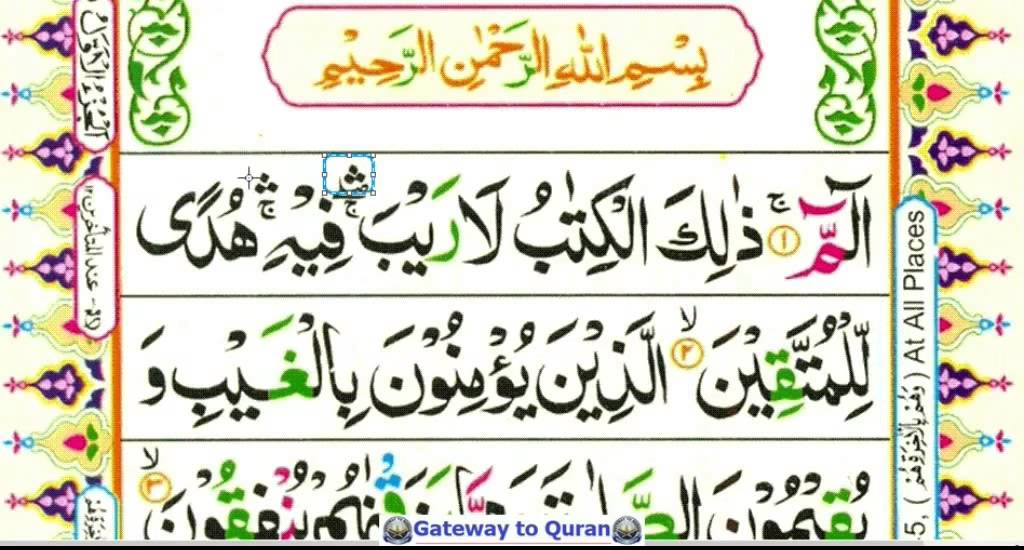 بِسْمِ اللهِ الرَّحْمٰنِ الرَّحِيْمِ
الٓمّٓ ۚ ١ ذٰلِكَ الْكِتٰبُ لَا رَيْبَ ۛۚ فِيْهِ ۛۚ هُدًى
لِّلْمُتَّقِيْنَ ۙ ٢ الَّذِيْنَ يُؤْمِنُوْنَ بِالْغَيْبِ وَ
يُقِيْمُوْنَ يُنْفِقُوْنَ ۙ ٣
At All Places
Gateway to Quran